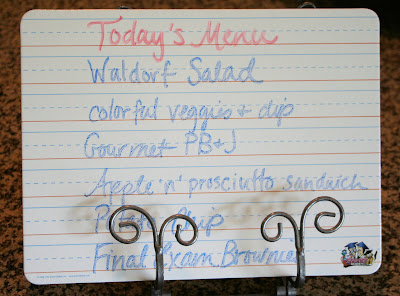 Today's Menu
Waldorf Salad
colorful veggies + dip
Gourmet PB+J
Apple 'n' prosciutto sandwich
Final Exam Brownie